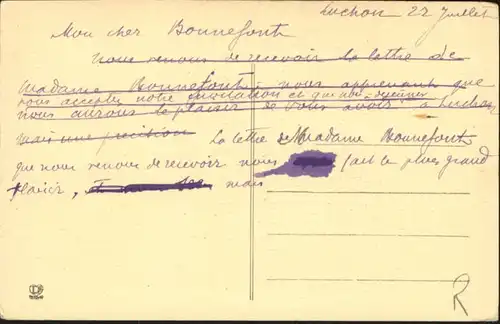 Luchon 22 Juillet
Mon cher Bonnefont
nous venons de recevoir la lettre de
Madame Bonnefont nous apprenant que
vous acceptez notre invitation et que nous
nous aurons le plaisir de vous avoir à Luchon
mais une précision La lettre de Madame Bonnefont
que nous venons de recevoir nous fait le plus grand
plaisir, mais
R